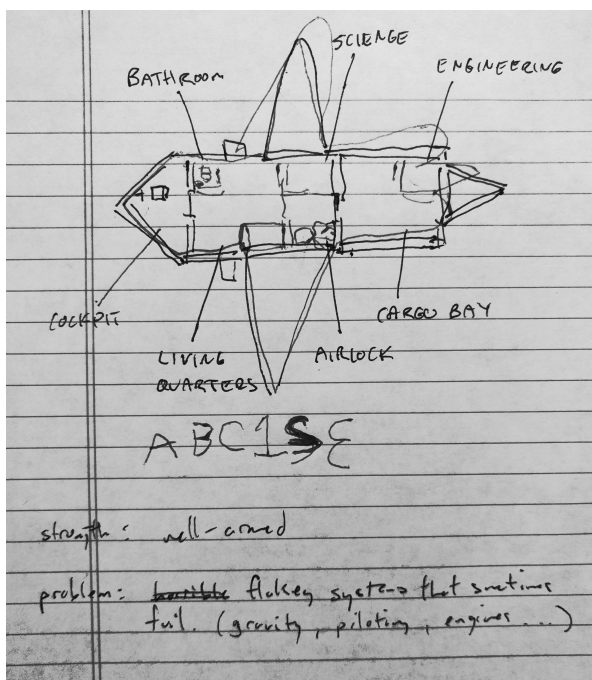 SCIENCE
BATHROOM
ENGINEERING
COCKPIT
CARGO BAY
LIVING
QUARTERS
AIRLOCK
strength: well-armed
problem: horrible flakey systems that sometimes
fail. (gravity, piloting, engines...)